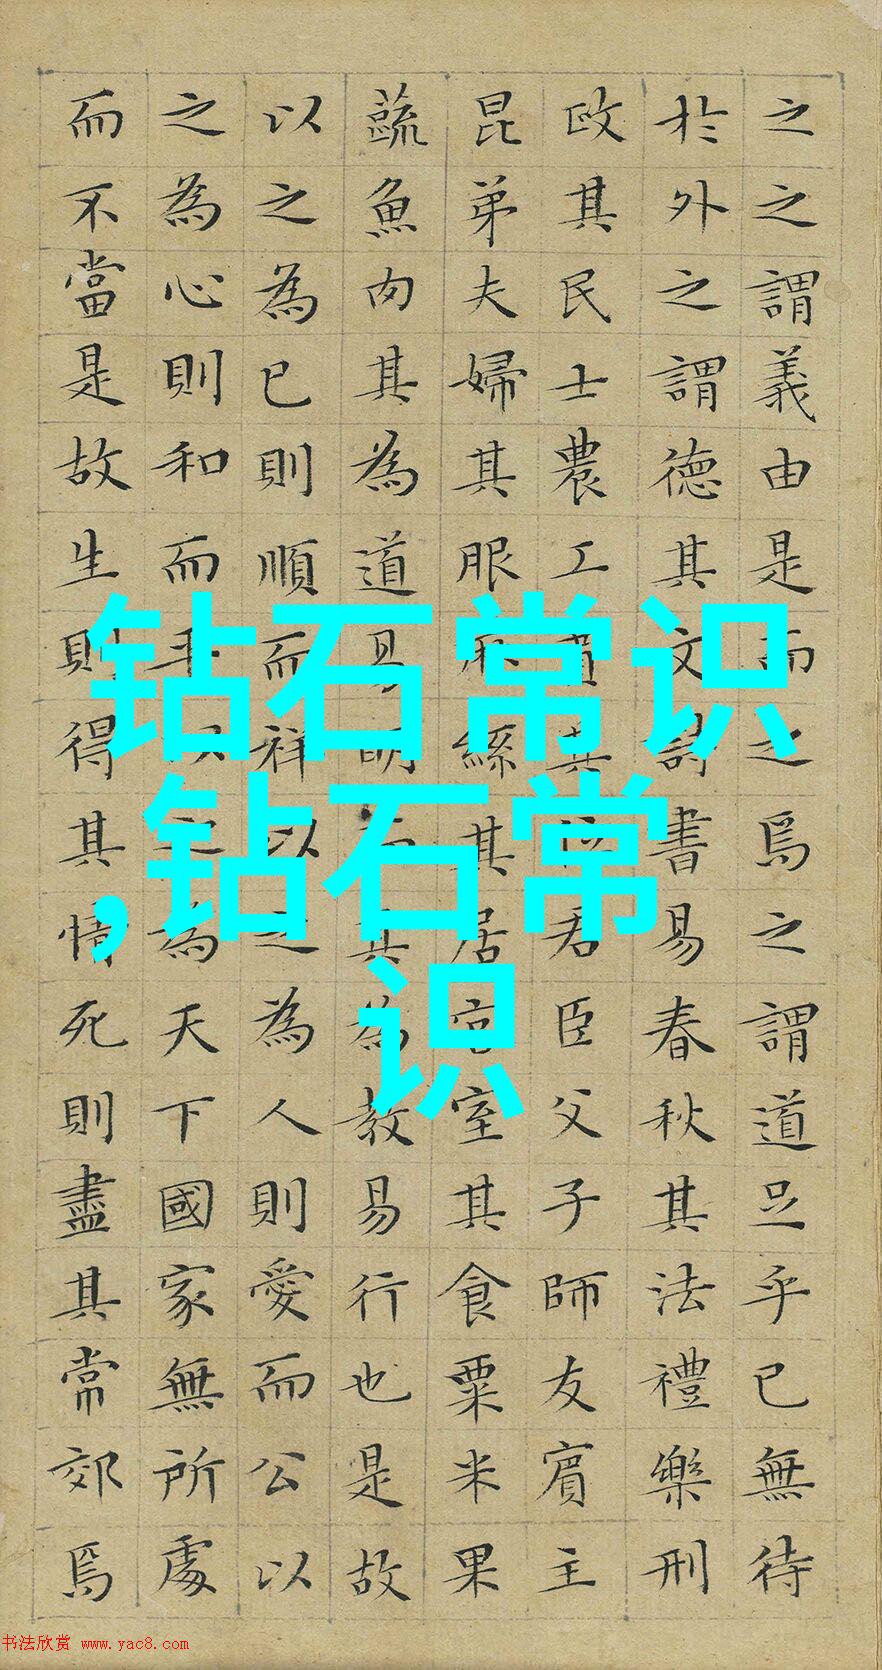 之之謂義由是而之焉之謂道足乎已無待
於外之謂德其文詩書易春秋其法禮樂刑
政其民士農工賈其位君臣父子師友賔主
昆弟夫婦其服麻絲其居宫室其食粟米果
蔬魚肉其為道易明而其為教易行也是故
以之為已則順而祥以之為人則愛而公以
之為心則和而平以之為天下國家無所處
而不當是故生則得其情死則盡其常郊焉
钻石常识
,钻石常
识
书法欣赏 www.yac8.com